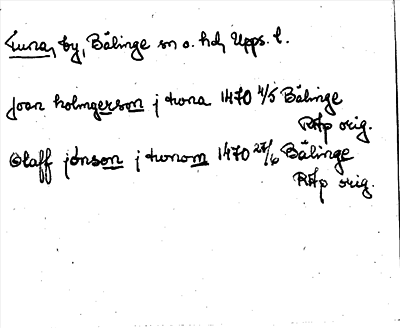 Tuna, by, Bälinge sn o. hd, Upps. l.
joan holmgerson j twna 1470 4/5 Bälinge
RAp orig.
Olaff jönson j twnom 1470 27/6 Bälinge
RAp orig.